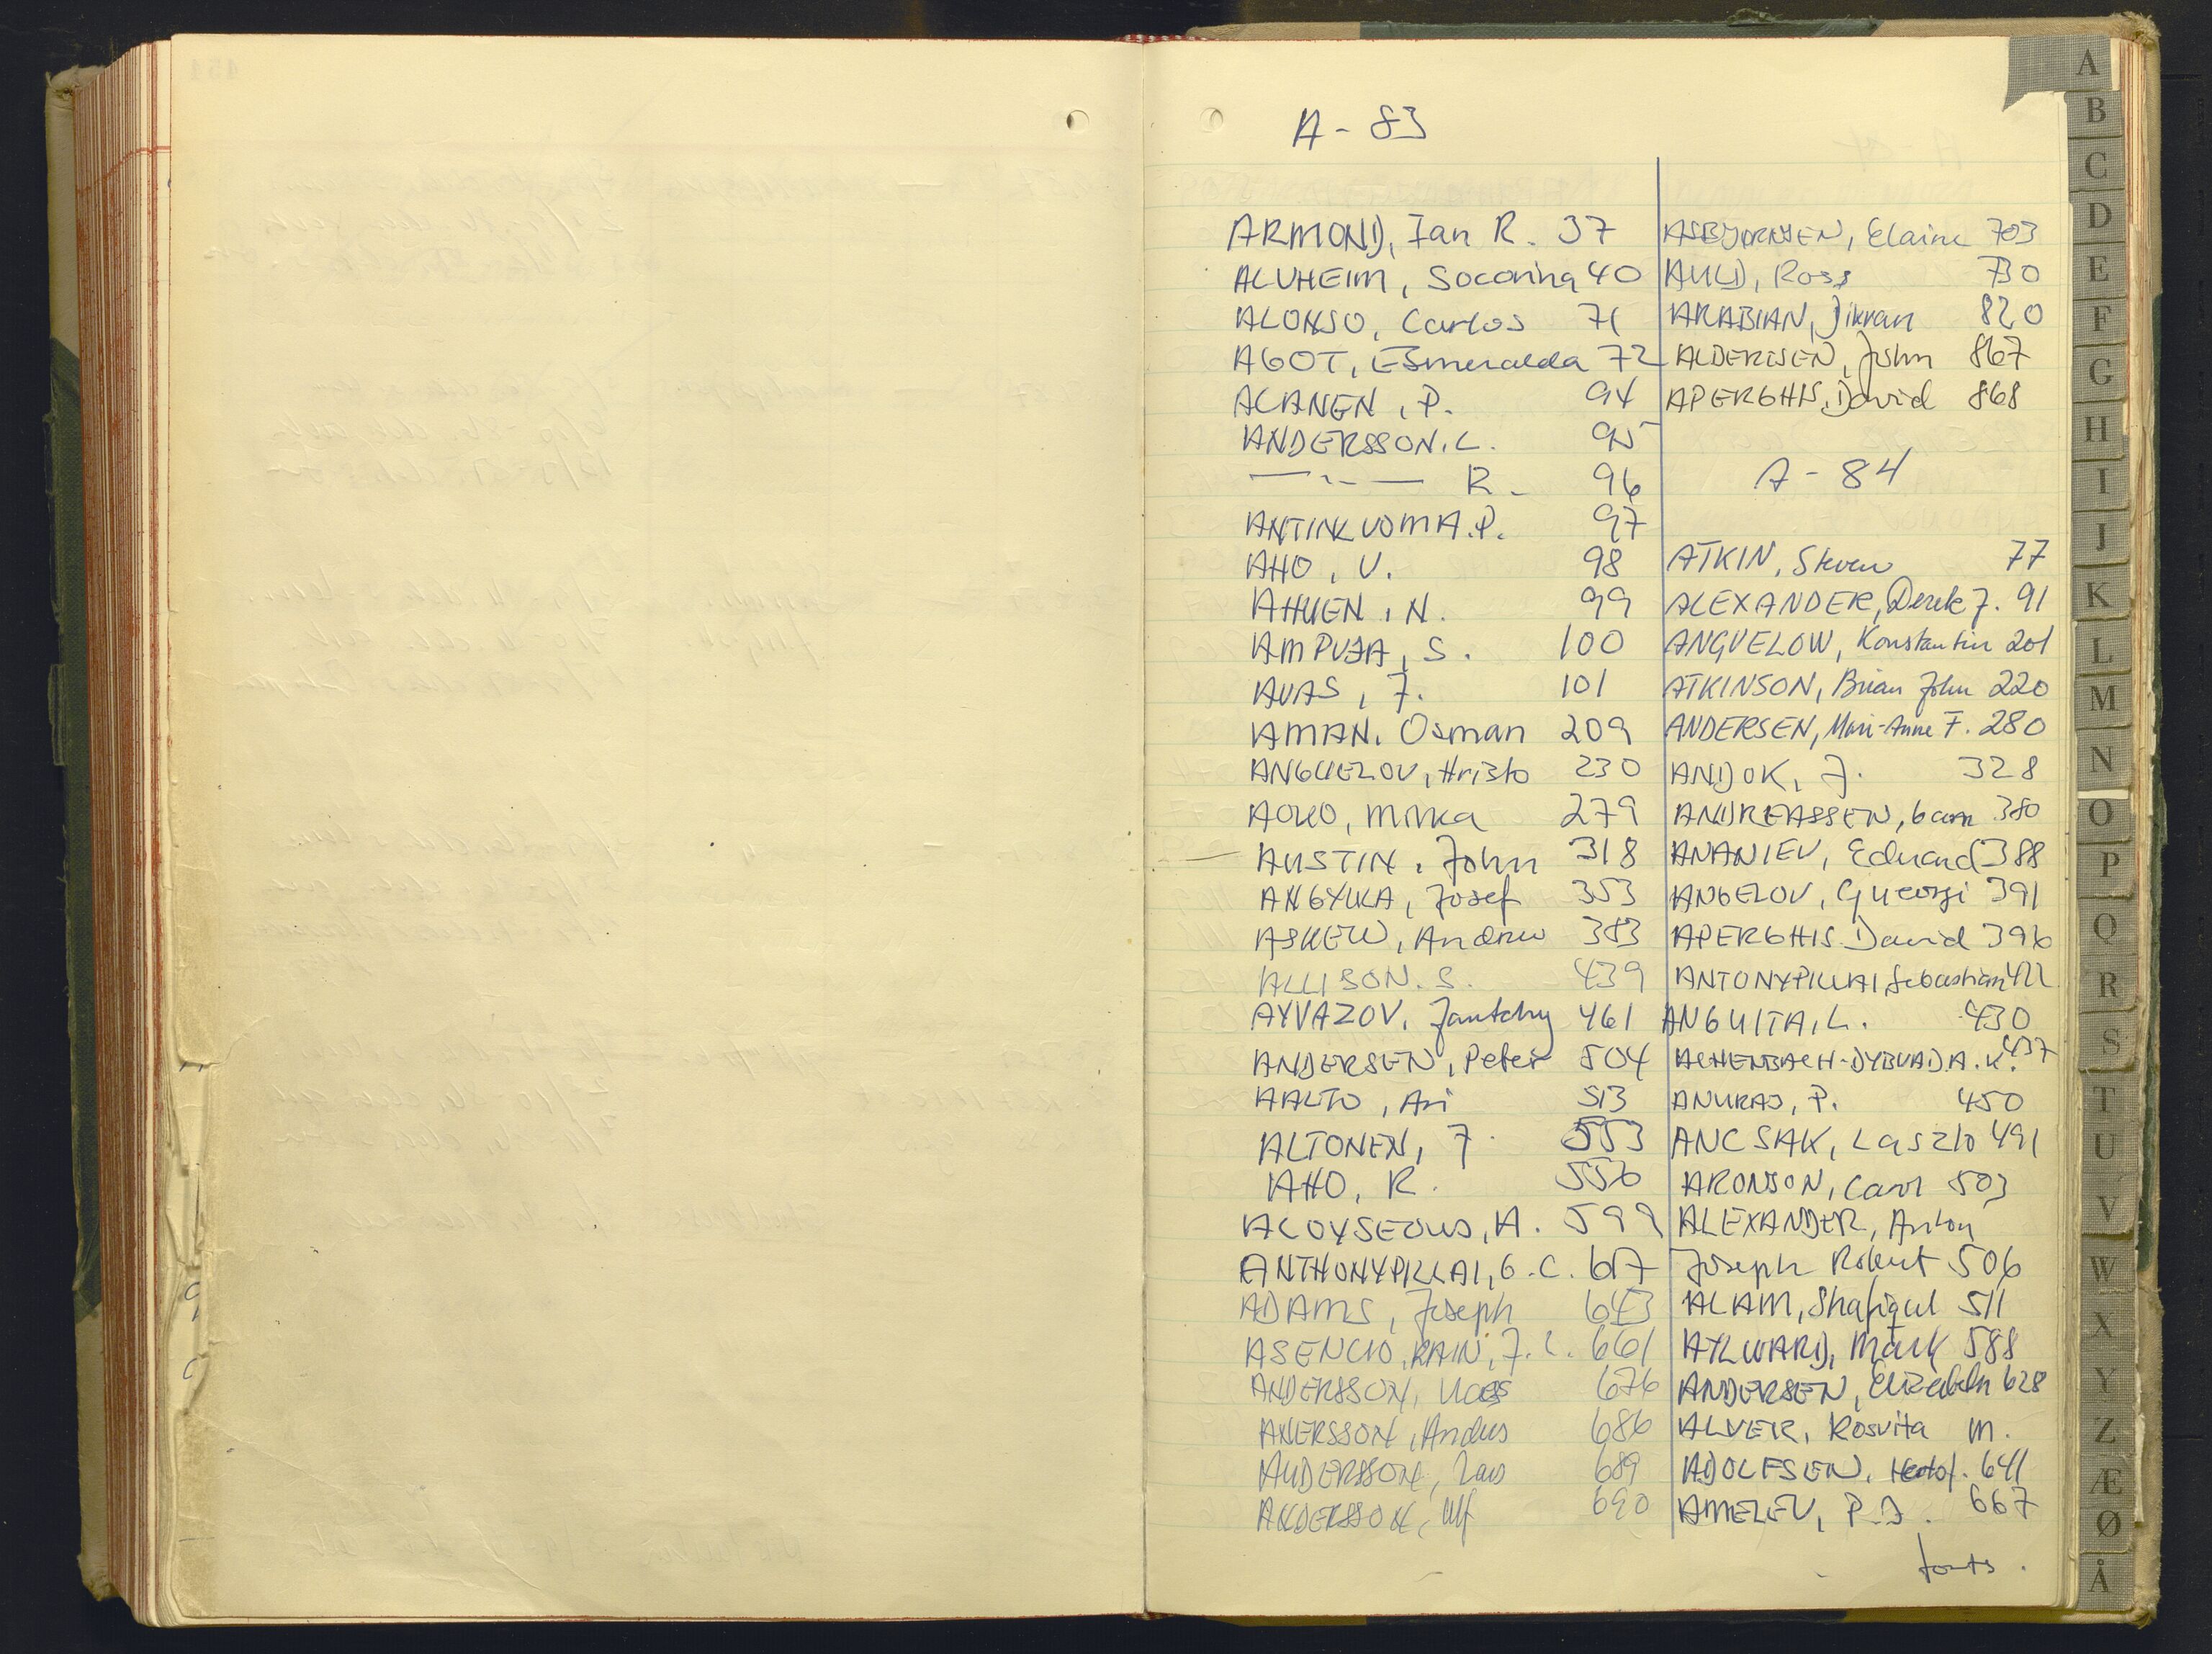 A - 83
ARMOND, Ian R. 37
ALVHEIM, Socorina 40
ALONSO, Carlos 71
AGOT, Esmeralda 72
ALANEN, P. 94
ANDERSSON, L. 95
— " — R. 96
ANTINLUOMA, P. 97
AHO, V. 98
AHUEN, N. 99
AMPUJA, S. 100
AUAS, J. 101
AMAN, Osman 209
ANGUELOV, Hristo 230
AOKO, Mirka 279
— AUSTIN, John 318
ANGYUKA, Josef 353
ASKEW, Andrew 383
ALLISON. S. 439
AYVAZOV, Jantchy 461
ANDERSEN, Peter 504
AALTO, Ari 513
ALTONEN, J. 553
AHO, R. 556
ALOYSEOUS, A. 599
ANTHONYPILLAI, G.C. 617
ADAMS, Joseph 643
ASENCIO, RAIN, J.L. 661
ANDERSSON, 676
ANERSSON, Anders 686
ANDERSSON, Lars 689
ANDERSSON, Ulf 690
ASBJORNSEN, Elaine 703
AULD, Ross 730
ARABIAN, Dikran 820
ALDERTSEN, John 867
APERGHIS, David 868
A - 84
ATKIN, Steven 77
ALEXANDER, Derek J. 91
ANGUELOW, Konstantin 201
ATKINSON, Brian John 220
ANDERSEN, Mari-Anne F. 280
ANDOK, J. 328
ANDREASSEN, Gunn 380
ANANIEV, Eduard 388
ANGELOV, Gueorgi 391
APERGHIS David 396
ANTONYPILLAI, Sebastian 422
ANGUITA, L. 430
ACHENBACH-DYBVAD, A. K. 437
ANURAJ, P. 450
ANCSAK, Laszlo 491
ARONSON, Carol 503
ALEXANDER, Antony
Joseph Robert 506
ALAM, Shafiqul 511
AYLWARD, Mark 588
ANDERSEN, Elizabeth 628
ALVER, Rosvita M.
ADOLFSEN, 641
AMELEV, P.J. 667
forts.
A
B
C
D
E
F
G
H
I
J
K
L
M
N
O
P
Q
R
S
T
U
V
W
X
Y
Z
Æ
Ø
Å